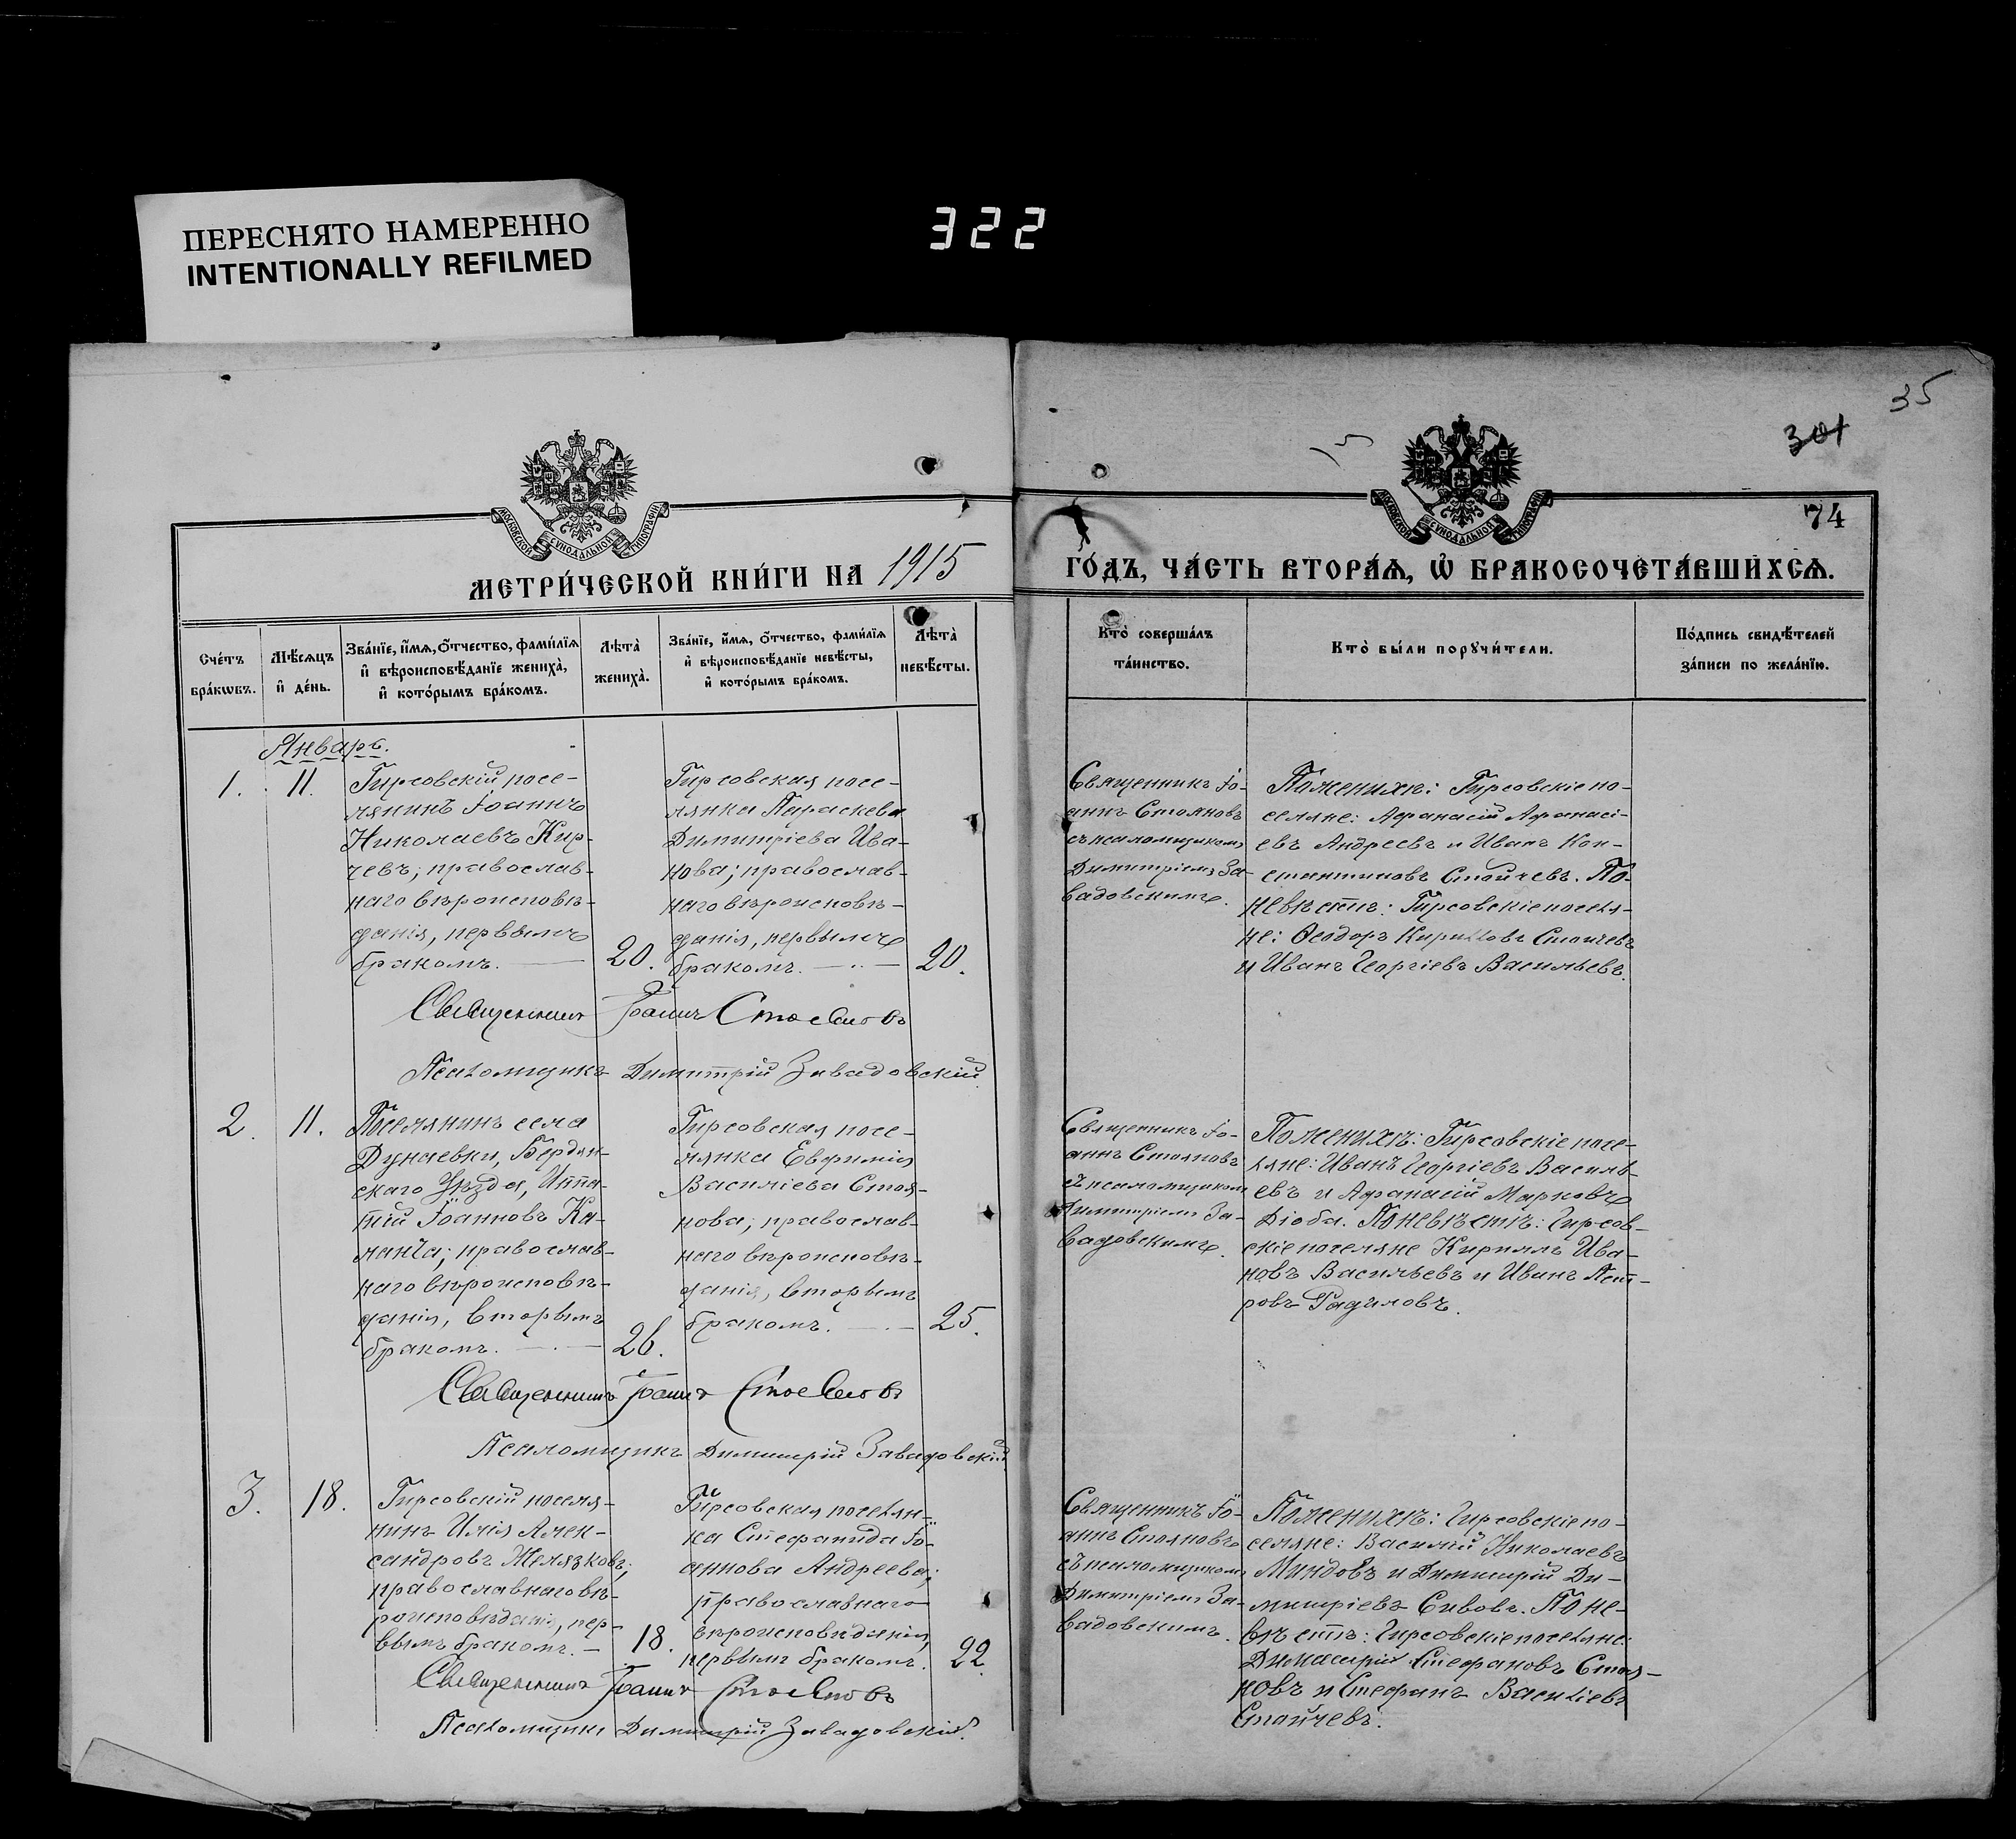 ПЕРЕСНЯТО НАМЕРЕННО
INTENTIONALLY REFILMED
322
35
301
74
МОСКОВСКОЙ СѴНОДАЛЬНОЙ ТИПОГРАФІИ
МОСКОВСКОЙ СѴНОДАЛЬНОЙ ТИПОГРАФІИ
МЕТРИ́ЧЕСКОЙ КНИ́ГИ НА 1915
ГО́ДЪ, ЧА́СТЬ ВТОРА́Ѧ, Ѽ БРАКОСОЧЕТА́ВШИХСѦ.
Сче́тъ
бра́кѡвъ.
Мѣ́сѧцъ
и҆ де́нь.
Зва́нїе, и҆́мѧ, ѻ҆́тчество, фами́лїѧ
и҆ вѣроисповѣ́данїе жениха̀,
и҆ кото́рымъ бра́комъ.
Лѣта̀
жениха̀.
Зва́нїе, и҆́мѧ, ѻ҆́тчество, фами́лїѧ
и҆ вѣроисповѣ́данїе невѣ́сты,
и҆ кото́рымъ бра́комъ.
Лѣта̀
невѣ́сты.
Кто̀ соверша́лъ
та́инство.
Кто̀ бы́ли порꙋчи́тели.
По́дпись свидѣ́телей
за́писи по жела́нїю.
Январь.
1.
11.
Гирсовскій посе-
лянинъ Іоаннъ
Николаевъ Кир-
чевъ; православ-
наго вѣроисповѣ-
данія, первымъ
бракомъ.
20.
Гирсовская посе-
лянка Параскева
Димитріева Ива-
нова; православ-
наго вѣроисповѣ-
данія, первымъ
бракомъ.
20.
Священникъ Іо-
аннъ Стояновъ
съ псаломщикомъ
Димитріемъ За-
вадовскимъ.
По женихѣ: Гирсовскіе по-
селяне: Афанасій Афанасі-
евъ Андреевъ и Иванъ Кон-
стантиновъ Стойчевъ. По
невѣстѣ: Гирсовскіе поселя-
не: Ѳеодоръ Кирилловъ Стойчевъ
и Иванъ Георгіевъ Васильевъ.
Священникъ Іоаннъ Стояновъ
Псаломщикъ Димитрій Завадовскій
2.
11.
Поселянинъ села
Дунаевки, Бердян-
скаго Уѣзда, Ипа-
тій Іоанновъ Ка-
ланча; православ-
наго вѣроисповѣ-
данія, вторымъ
бракомъ.
26.
Гирсовская посе-
лянка Евфимія
Василіева Стоя-
нова; православ-
наго вѣроисповѣ-
данія, вторымъ
бракомъ.
25.
Священникъ Іо-
аннъ Стояновъ
съ псаломщикомъ
Димитріемъ За-
вадовскимъ.
По женихѣ: Гирсовскіе посе-
ляне: Иванъ Георгіевъ Василь-
евъ и Афанасій Марковъ
Діоба. По невѣстѣ: Гирсов-
скіе поселяне Кириллъ Ива-
новъ Васильевъ и Иванъ Пет-
ровъ Радиловъ.
Священникъ Іоаннъ Стояновъ
Псаломщикъ Димитрій Завадовскій
3.
18.
Гирсовскій поселя-
нинъ Илія Алек-
сандровъ Желязковъ;
православнаго вѣ-
роисповѣданія, пер-
вымъ бракомъ.
18.
Гирсовская поселян-
ка Стефанида Іо-
аннова Андреева;
православнаго
вѣроисповѣданія,
первымъ бракомъ.
22.
Священникъ Іо-
аннъ Стояновъ
съ псаломщикомъ
Димитріемъ За-
вадовскимъ.
По женихѣ: Гирсовскіе по-
селяне: Василій Николаевъ
Миндовъ и Димитрій Ди-
митріевъ Сивовъ. По не-
вѣстѣ: Гирсовскіе поселяне:
Димитрій Стефановъ Стоя-
новъ и Стефанъ Василіевъ
Стойчевъ.
Священникъ Іоаннъ Стояновъ
Псаломщикъ Димитрій Завадовскій